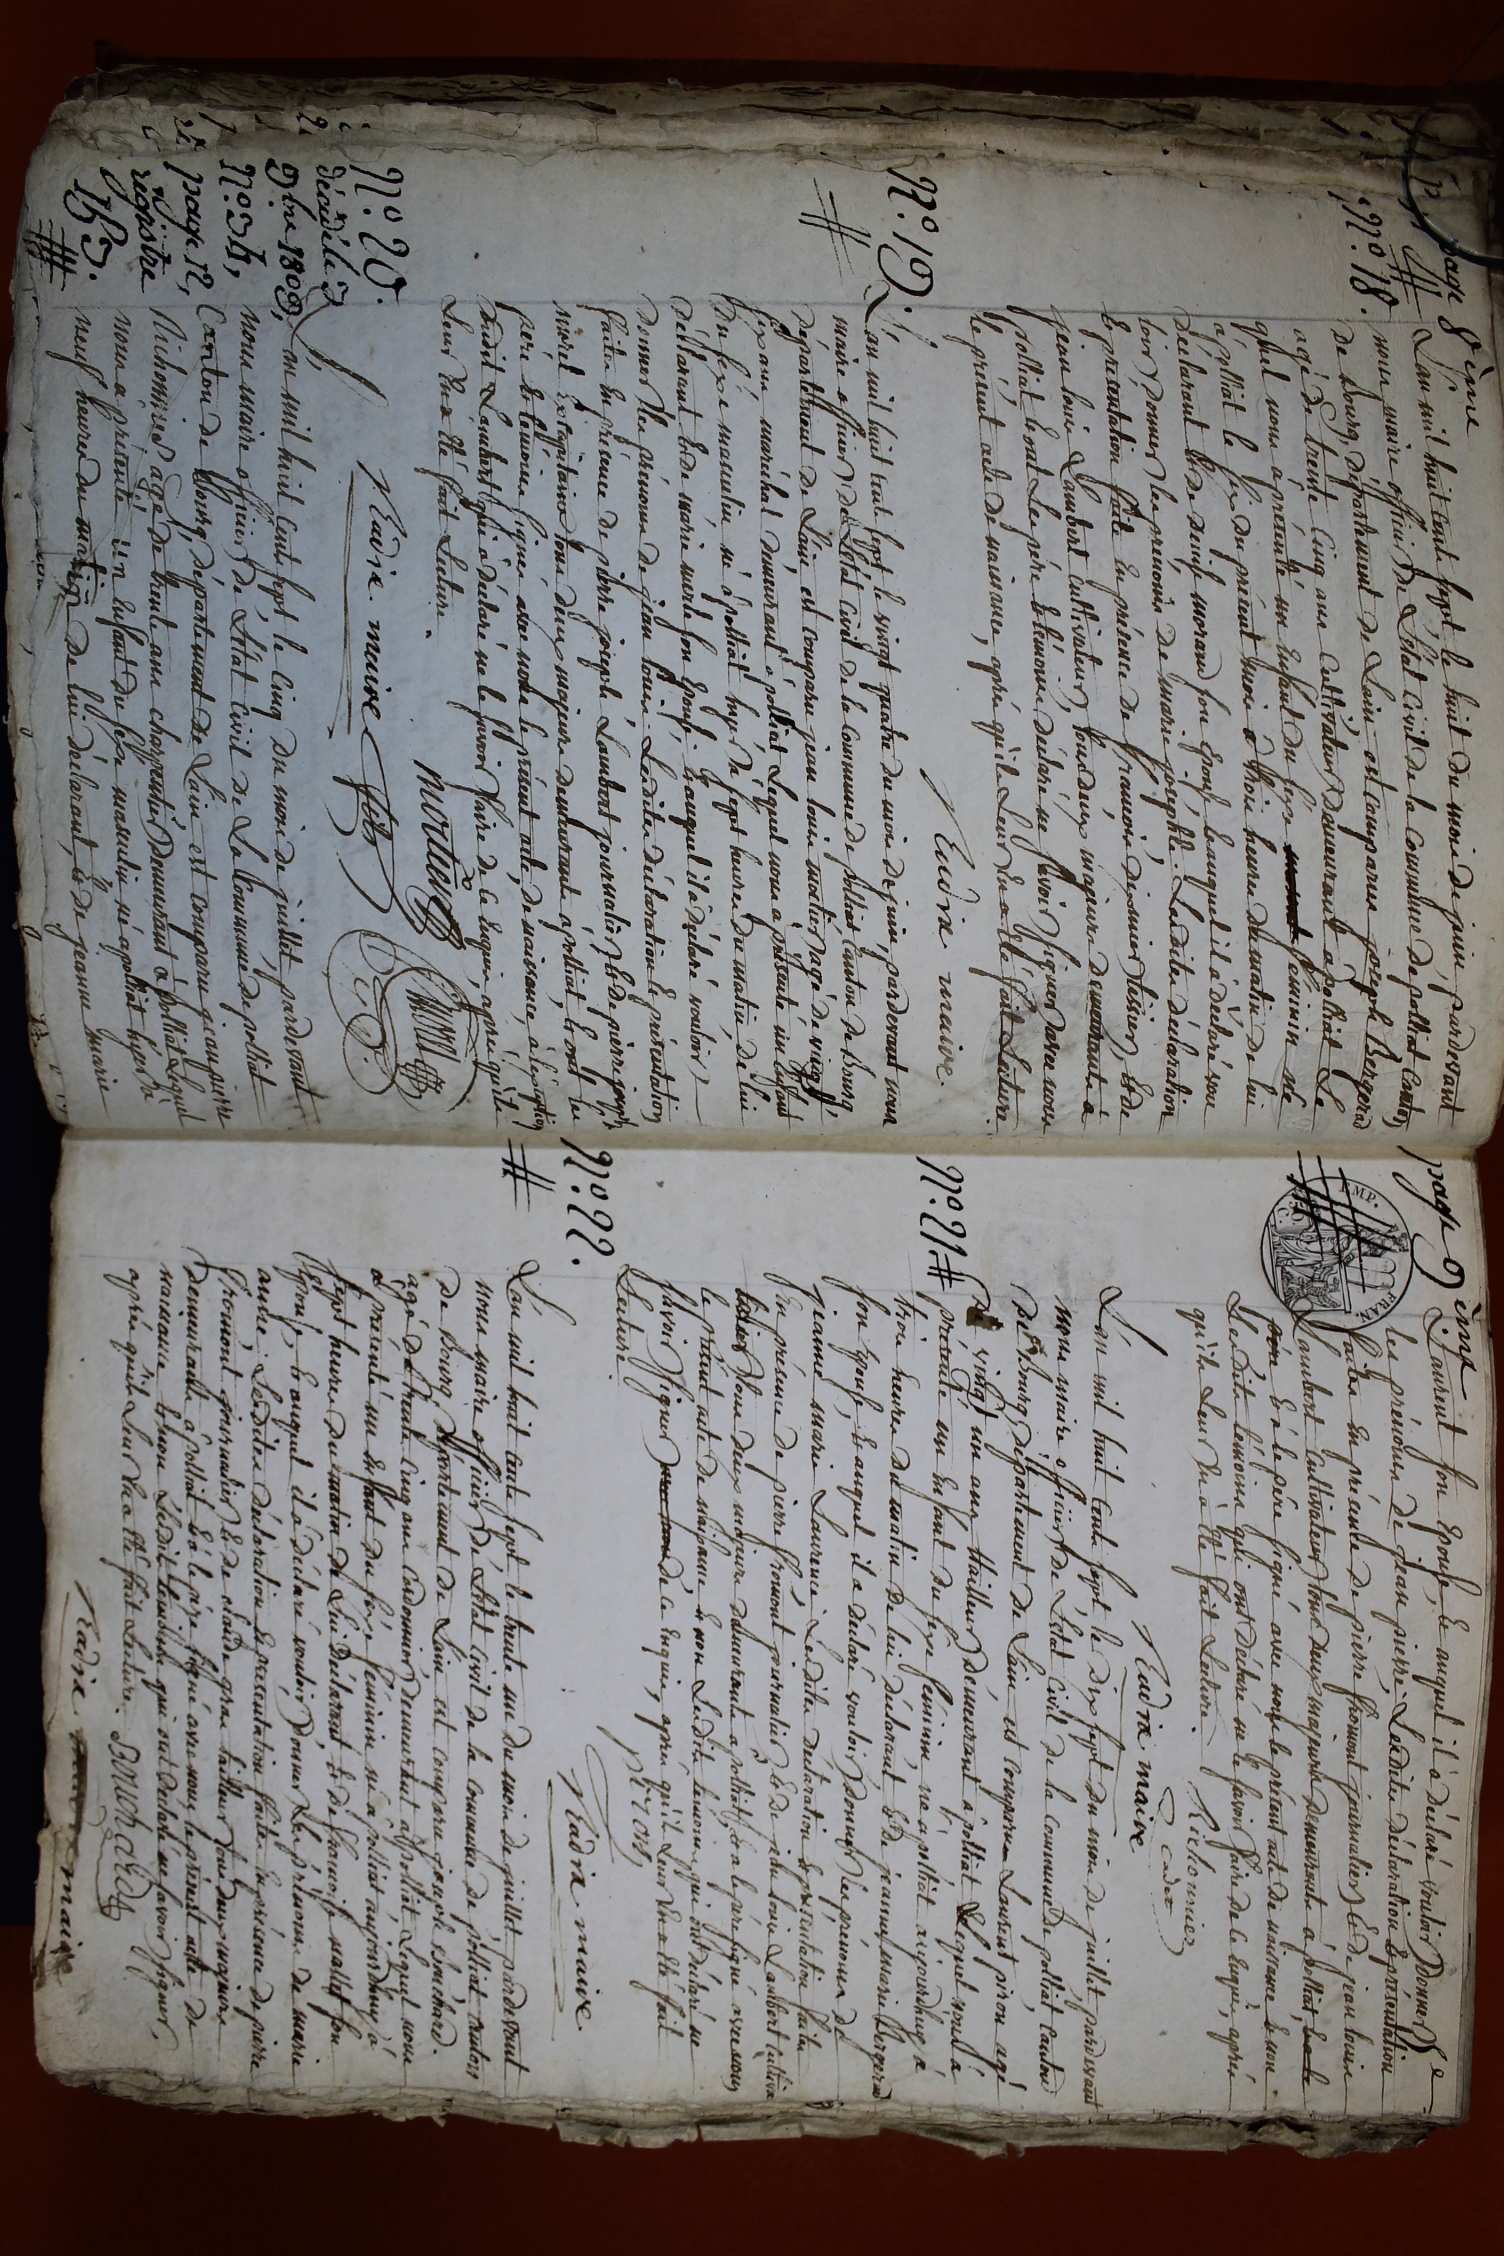 page 8ème
N.º 18.
L'an mil huit cent sept le huit du mois de juin, pardevant
nous maire officier de L'état Civil de la Commune de polliat Canton
de bourg, département de Lain est Comparu joseph Bergerad
agé de trente Cinq ans Cultivateur Demeurant à polliat Le
quel nous à présenté un Enfant du sexe feminin né
à polliat le six du présent mois à trois heures du matin de lui
déclarant Et de denise morand son Epouse, Et auquel il a déclaré vou
loir Donner les prenoms de marie josephte Lesdite déclaration
Et présentation faite En présence de francois
jean louis Lambert Cultivateur, tous deux majeurs demeurants à
polliat Et ont Les père Et témoins déclaré ne savoir signer avec nous
le présent acte de naissance, après qu'il Leur En a été fait Lecture.
Nidrix maire.
N.º 19.
L'an mil huit cent sept le vingt quatre du mois de juin, pardevant nous
maire officier de L'état civil de la Commune de polliat Canton de Bourg,
département de Lain est Comparu jean louis mortier agé de vingt
six ans maréchal demeurant à polliat Lequel nous a présenté un Enfant
du sexe masculin né à polliat hyer à sept heures du matin de lui
déclarant Et de marie morel son Epouse, Et auquel il a déclaré vouloir
donner les prénoms de jean louis Lesdite déclaration Et présentation
faite En présence de pierre joseph Lambert journalier Et de pierre joseph
morel tous deux majeurs demeurants à polliat Et ont les
père Et témoins signés avec nous le présent acte de naissance, à l'éxeption
dudit Lambert qui a déclaré ne le savoir faire de ce Enquis, après qu'il
Leur En a été fait Lecture.
mortier
Nidrix maire
N.º 20.
décédé le
9bre 1809,
N.º 34,
page 12,
registre
L'an mil huit cent sept le cinq du mois de juillet, pardevant
nous maire officier de L'état Civil de La Commune de polliat
Canton de Bourg, département de Lain, est comparu jean pierre
Richonnier agé de trente ans charpentier Demeurant à polliat Lequel
nous a présenté un Enfant du sexe masculin né à polliat hyer à
neuf heures du matin de lui déclarant, Et de jeanne marie
page 9ème
Laurent son Epouse, Et auquel il a déclaré vouloir Donner
les prénoms de jean pierre Lesdite déclaration Et présentation
faite En présence de pierre fromont journalier Et de jean louis
Lambert Cultivateur tous deux majeurs demeurants à polliat,
Et à le père signé avec nous le présent acte de naissance Et non
Lesdits témoins qui ont déclaré ne le savoir faire de ce Enquis, après
qu'il Leur En a été fait Lecture.
Richonier
cadet
Nidrix maire
N.º 21
L'an mil huit Cent sept le dix sept du mois de juillet pardevant
nous maire officier de L'état civil de la commune de polliat, Canton
de Bourg, département de Lain, est Comparu Laurent piron agé
de vingt un ans thailleur demeurant à polliat Lequel nous à
présenté un Enfant du sexe feminin né à polliat aujourdhuy à
trois heures du matin de lui déclarant Et de jeanne marie Bergerad
son Epouse, Et auquel il a déclaré vouloir Donner les prénoms de
jeanne marie Laurence Lesdite déclaration Et présentation faite
En présence de pierre fromont journalier Et de jean louis Lambert Cultiva
teur tous deux majeurs demeurants à polliat, Et à le père signé avec nous
le présent acte de naissance Et non Lesdits témoins qui ont déclaré ne
savoir signer de ce Enquis, après qu'il Leur En a été fait
Lecture.
piron
Nidrix maire.
N.º 22.
L'an mil huit cent sept le trente un du mois de juillet pardevant
nous maire officier de L'état Civil de la commune de polliat canton
de Bourg, département de Lain est comparu joseph Bouchard
agé de trente Cinq ans Cordonnier demeurant à polliat, Lequel nous
à présenté un Enfant du sexe féminin né à polliat aujourdhuy à
sept heures du matin de Lui Déclarant Et de francoise mallet son
Epouse, Et auquel il a déclaré vouloir Donner Les prénoms de marie
andré Lesdite déclaration Et présentation faite En présence de pierre
fromont journalier Et de claude gras tailleur tous deux majeurs
demeurants à polliat Et à le père signé avec nous le présent acte de
naissance Et non Lesdits témoins qui ont déclaré ne savoir signer,
après qu'il Leur En a été fait Lecture. Bouchard
Nidrix maire